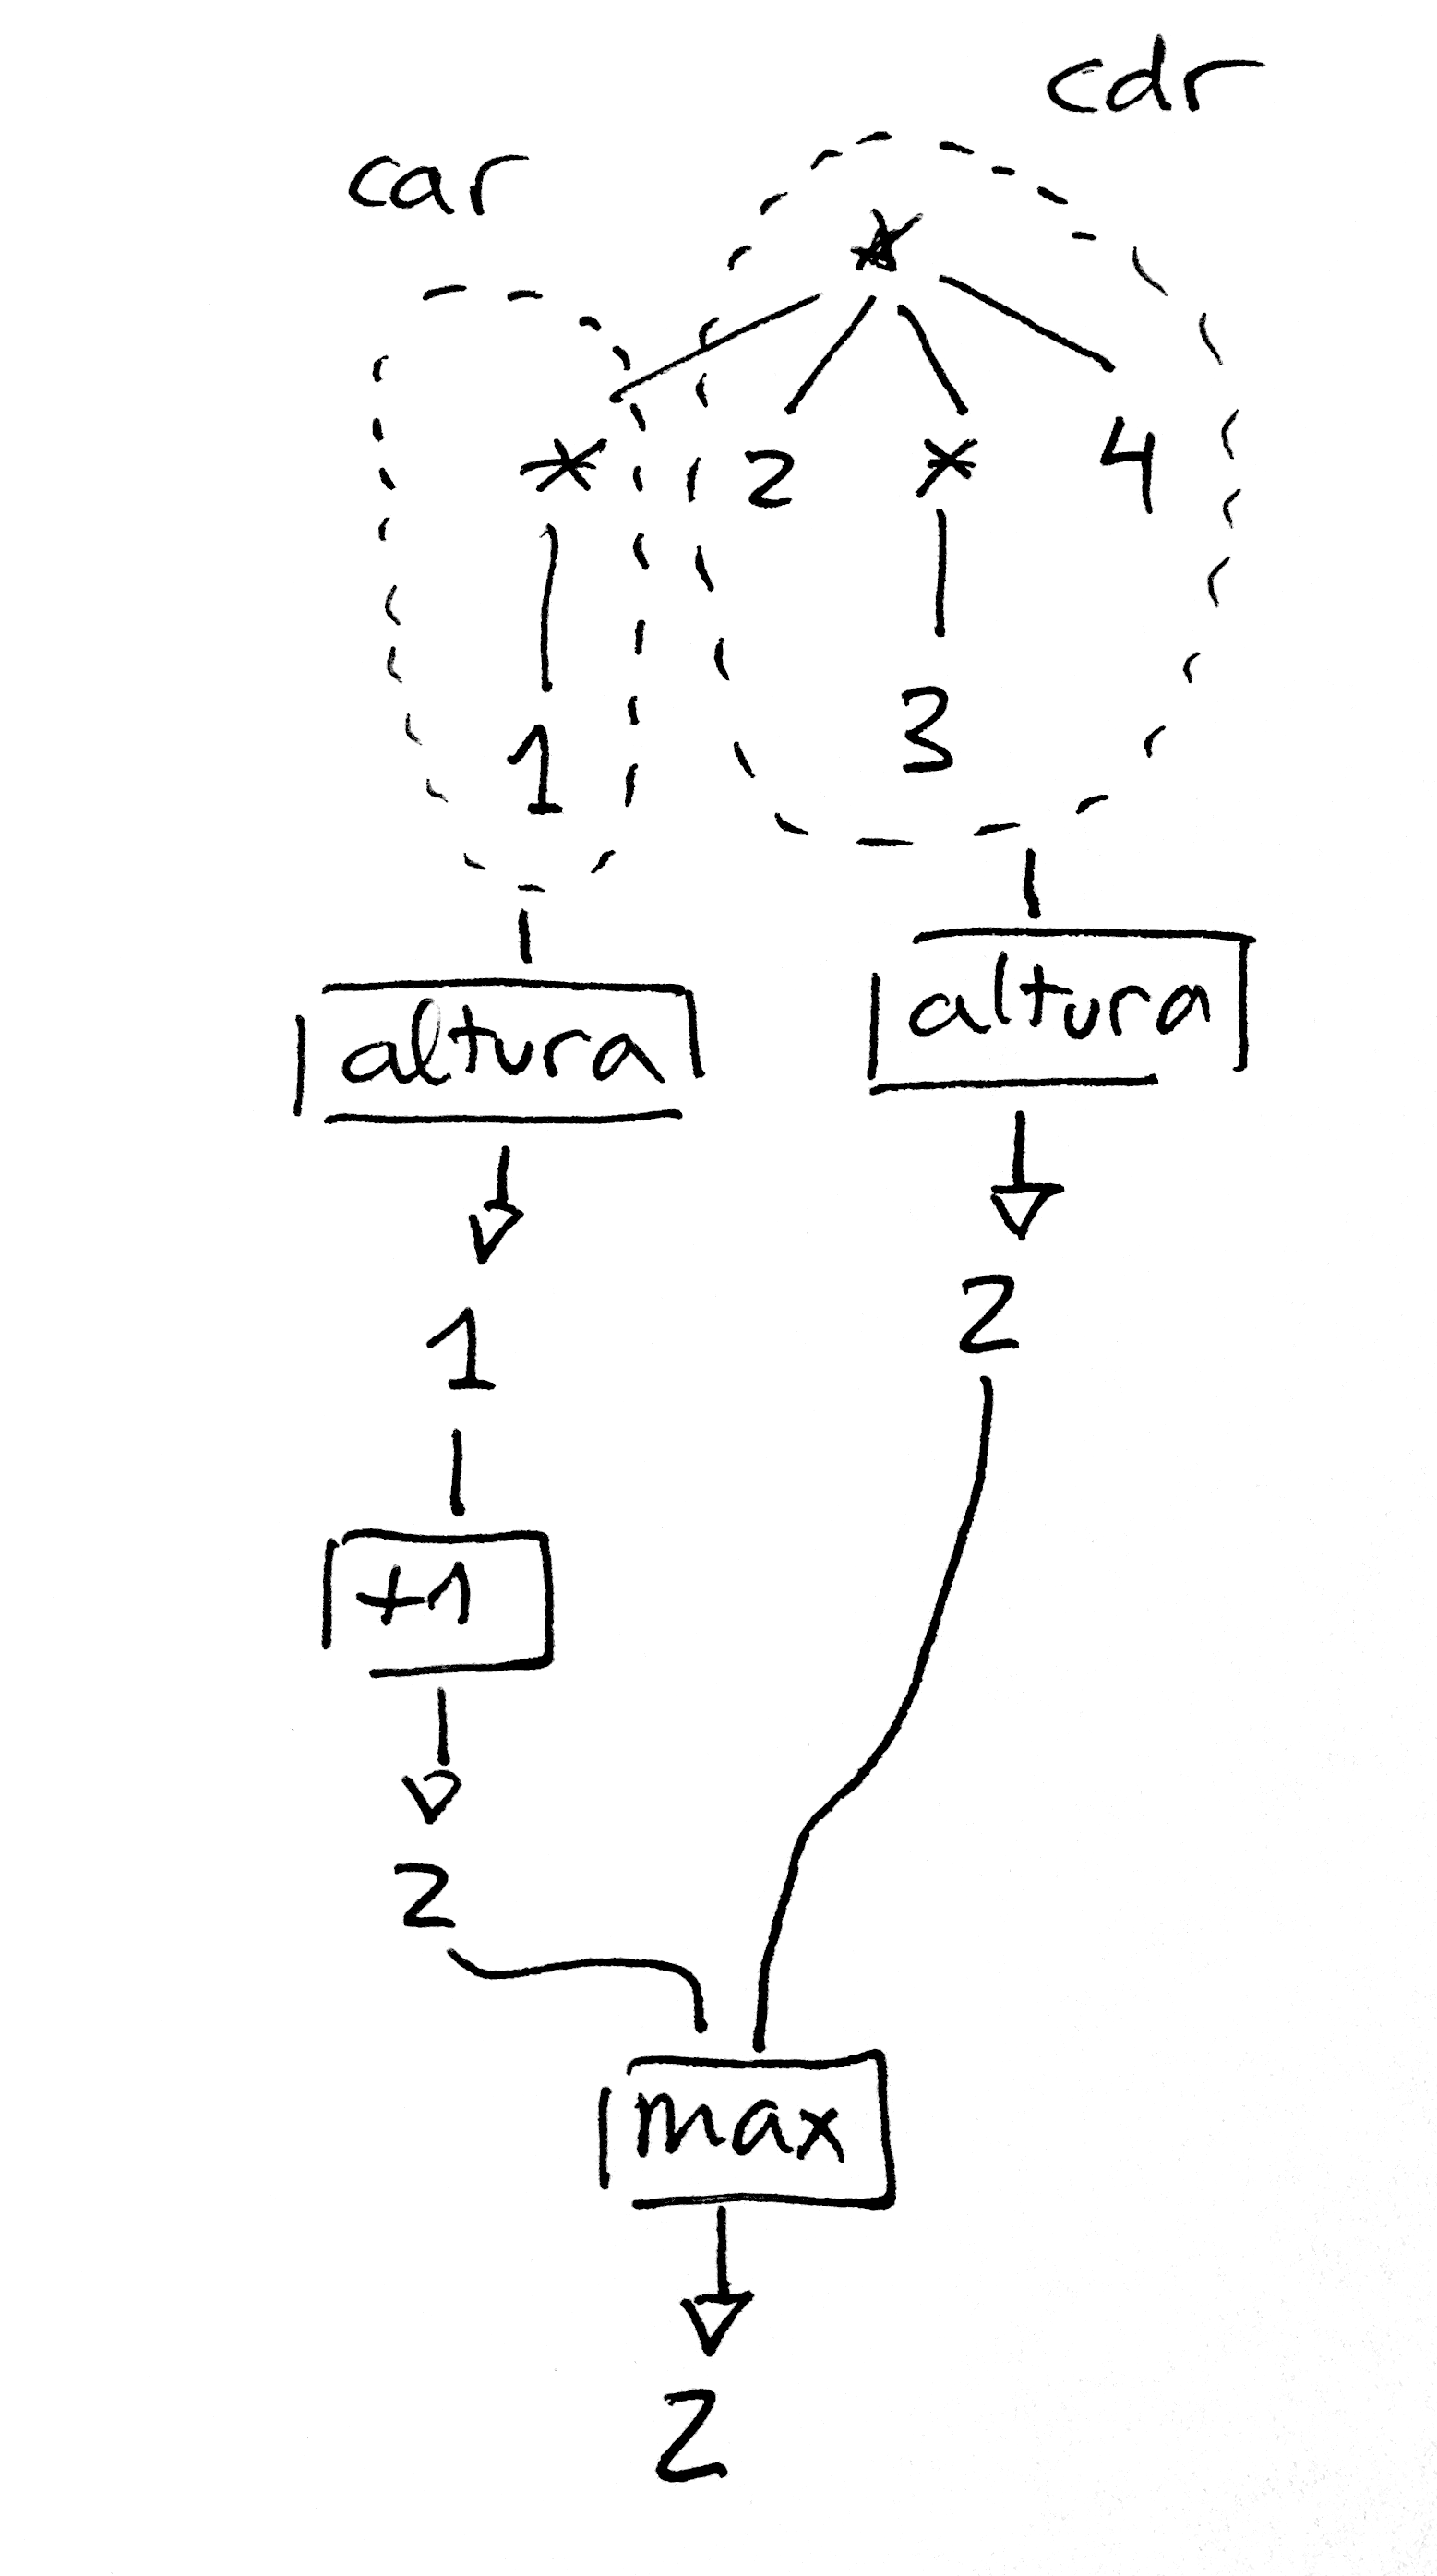 cdr
car
*
* 2 * 4
1 3
altura altura
1 2
+1
2
max
2